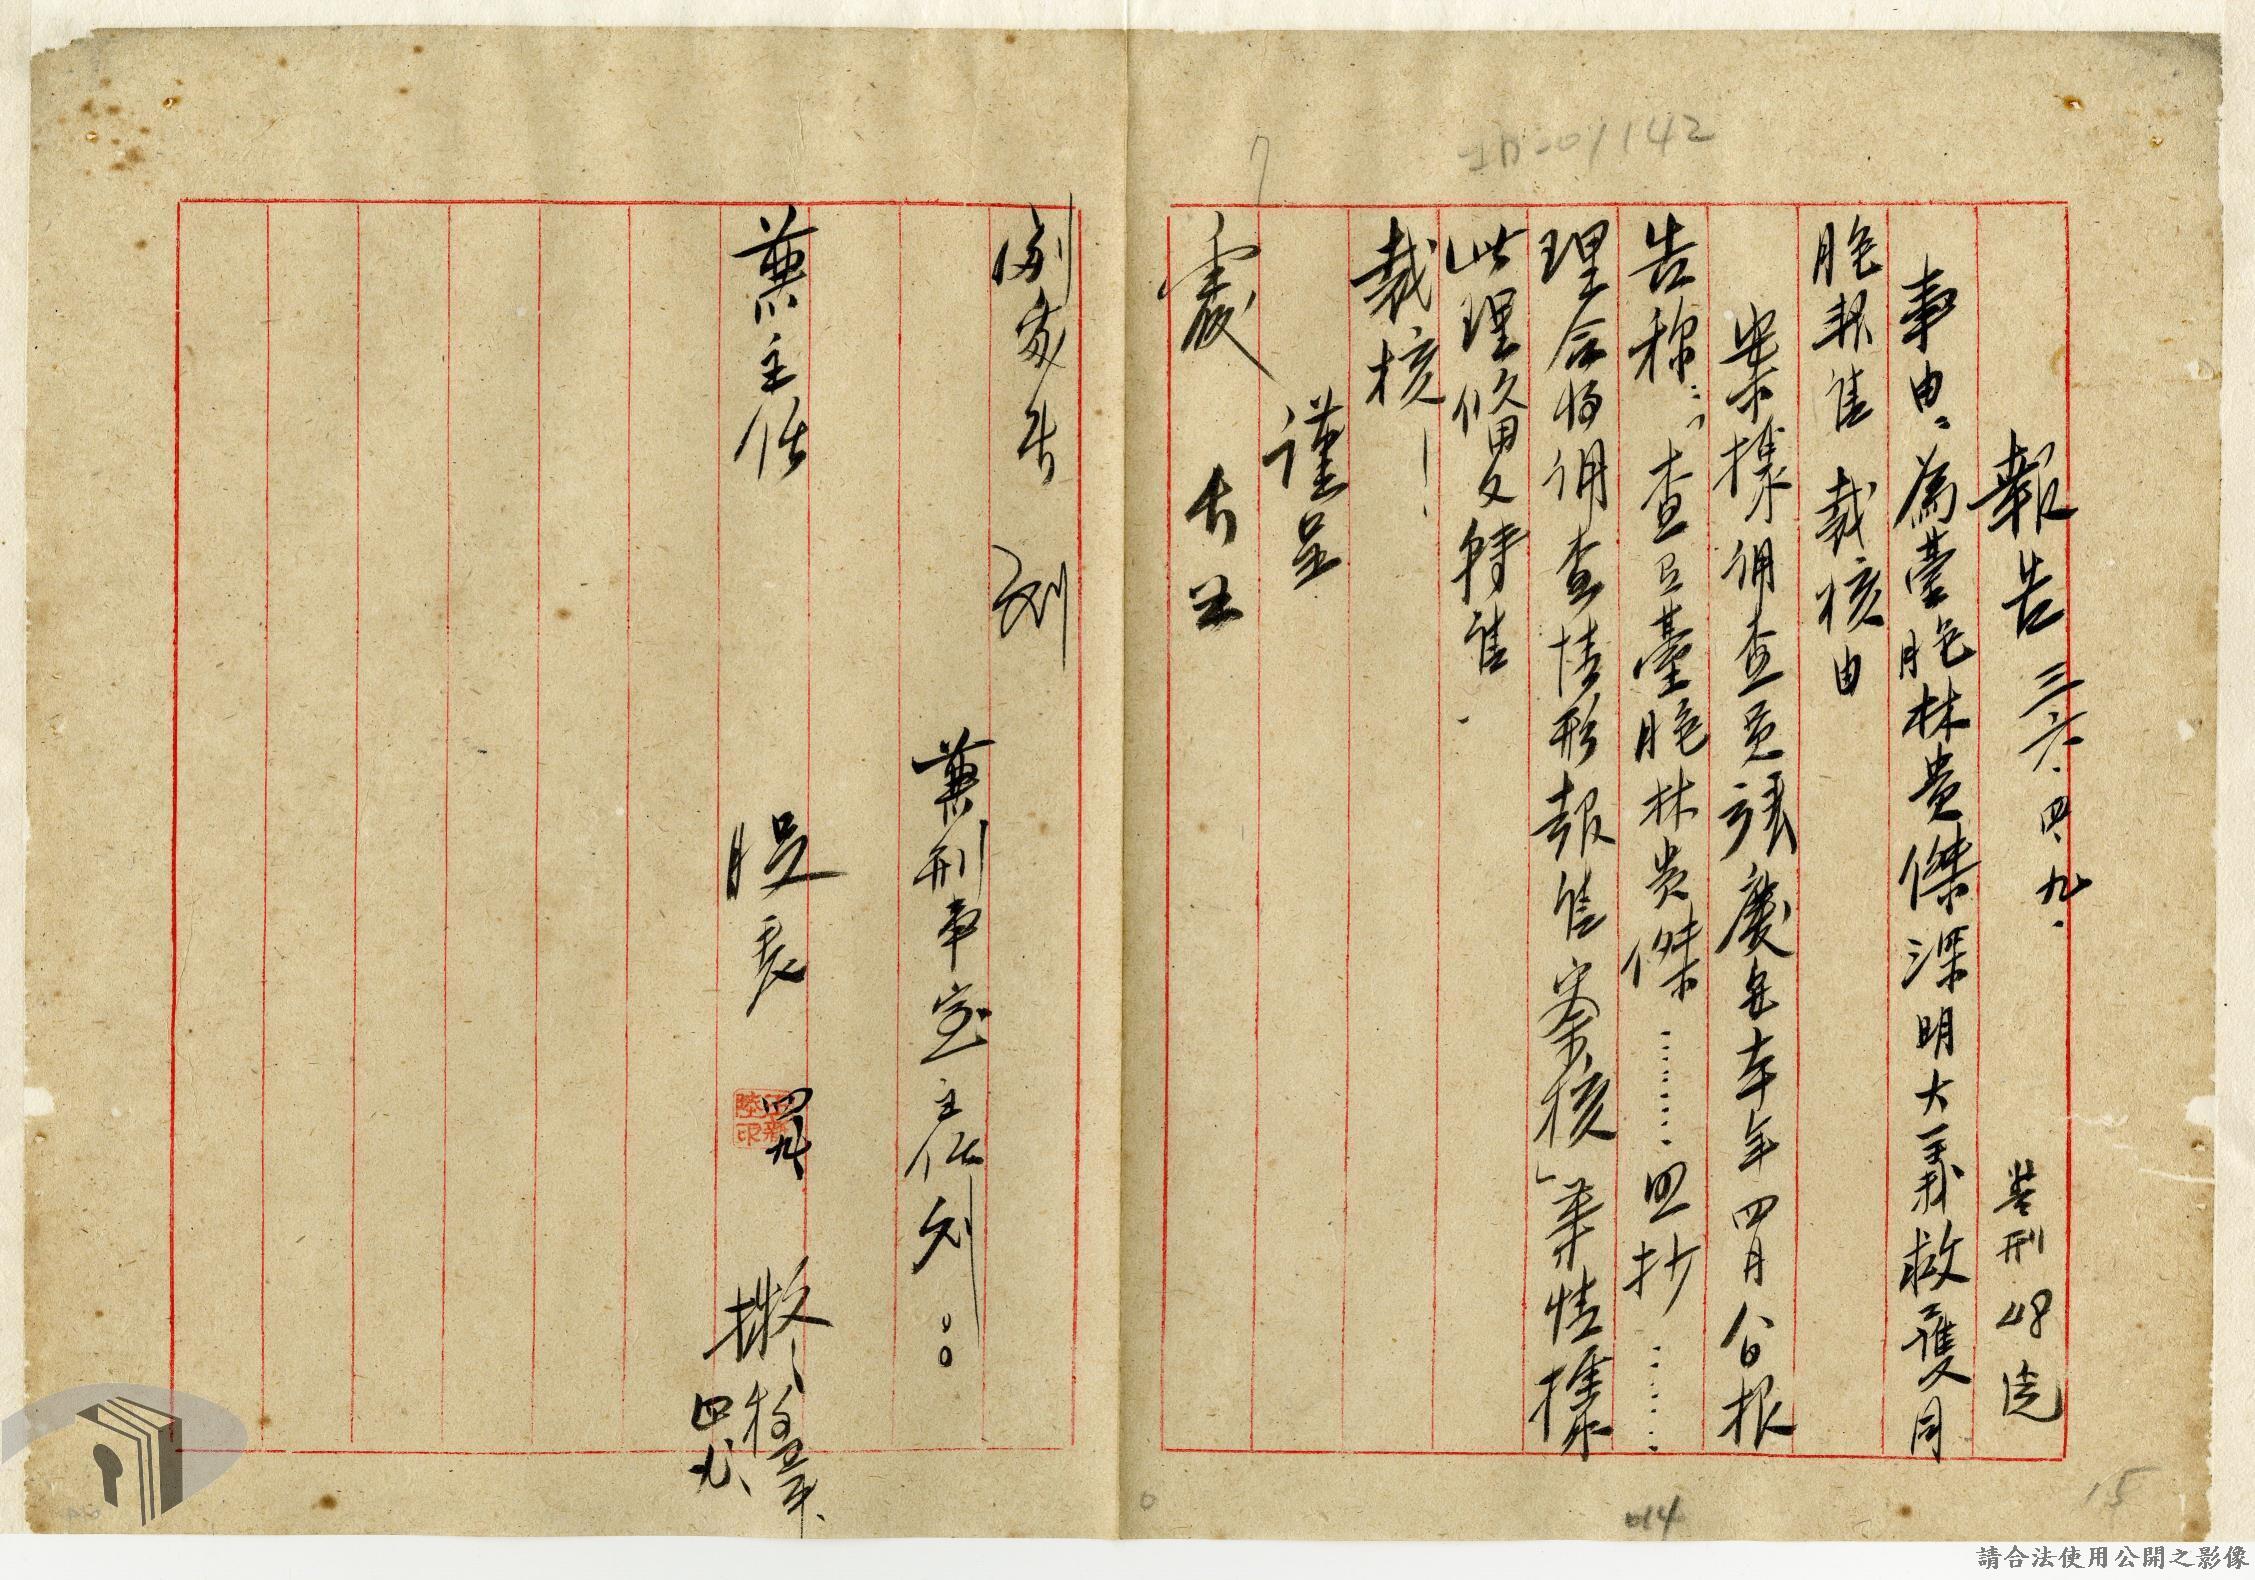 報告 三六.四.九. 警刑48號
事由:為臺胞林貴傑深明大義救護同
胞報請 裁核由
案據調查員張慶 本年四月八日報
告稱:「查臺胞林貴傑……照抄……
理合將調查情形報請察核」等情據
此理合備文轉請
裁核!
謹呈
處長
副處長 劉
兼刑事室主任劉
兼主任
四九
擬
四、九、
7
ID-01142
014
15
請合法使用公開之影像